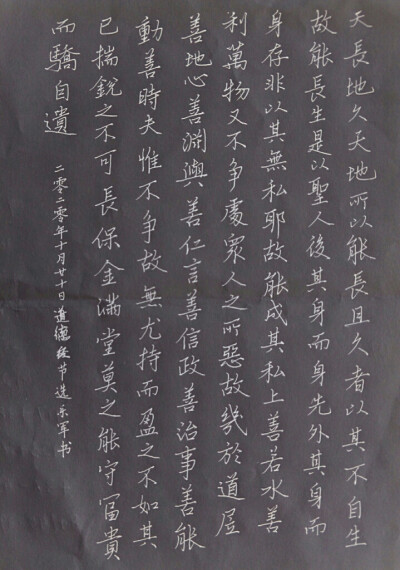 天長地久天地所以能長且久者以其不自生
故能長生是以聖人後其身而身先外其身而
身存非以其無私耶故能成其私上善若水善
利萬物又不争處衆人之所惡故幾於道居
善地心善淵與善仁言善信政善治事善能
動善時夫惟不争故無尤持而盈之不如其
已揣銳之不可長保金滿堂莫之能守富貴
而驕自遺
二零二零年十月廿十日道德经节选乐军书